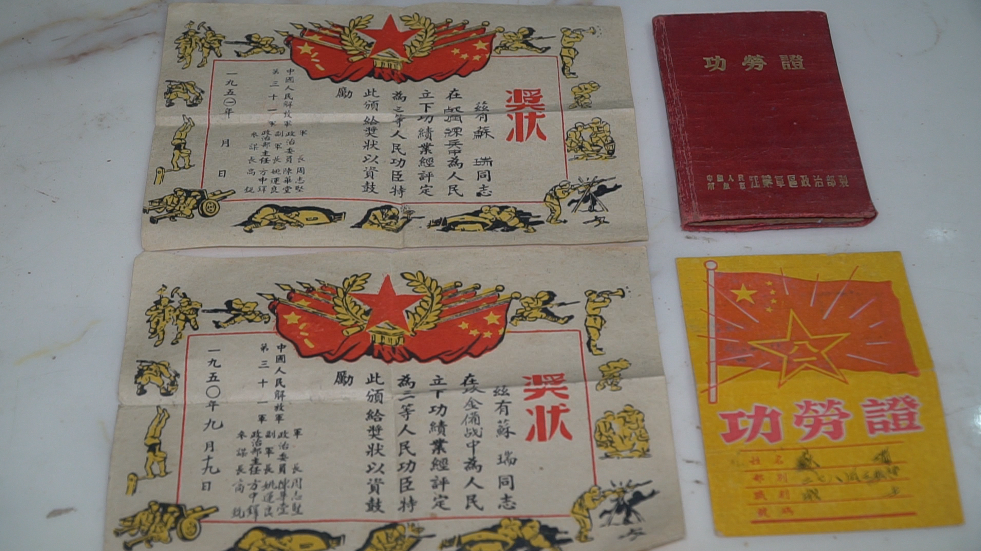 獎状
兹有蘇 瑞同志
在
立下功績業經評定
為三等人民功臣特
此頒給獎状以資鼓
勵
中國人民解放軍
第三十一軍
軍長周志堅
政治委員陳華堂
副軍長姚運良
政治部主任方中鐸
參謀長高銳
一九五〇年 月 日
獎状
兹有蘇 瑞同志
在 金備战中為人民
立下功績業經評定
為二等人民功臣特
此頒給獎状以資鼓
勵
中國人民解放軍
第三十一軍
軍長周志堅
政治委員陳華堂
副軍長姚運良
政治部主任方中鐸
參謀長高銳
一九五〇年九月十九日
功勞證
中國人民
解放軍
江蘇軍區政治部製
八一
功勞證
姓名
部别
職别
號碼